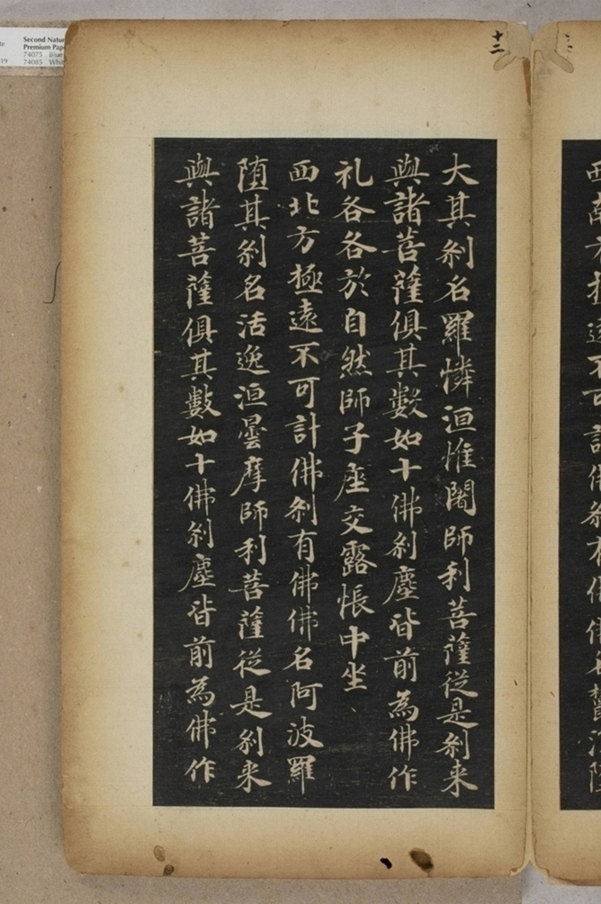 十二
西南方極遠不可計佛刹有佛佛名
大其刹名羅憐洹惟闍師利菩薩從是刹来
與諸菩薩俱其數如十佛刹塵皆前為佛作
礼各各於自然師子座交露帳中坐
西北方極遠不可計佛刹有佛佛名阿波羅
堕其刹名活逸洹曇摩師利菩薩從是刹来
與諸菩薩俱其數如十佛刹塵皆前為佛作
Second Natur
Premium Pap
74075 Blue
74085 Whit
19